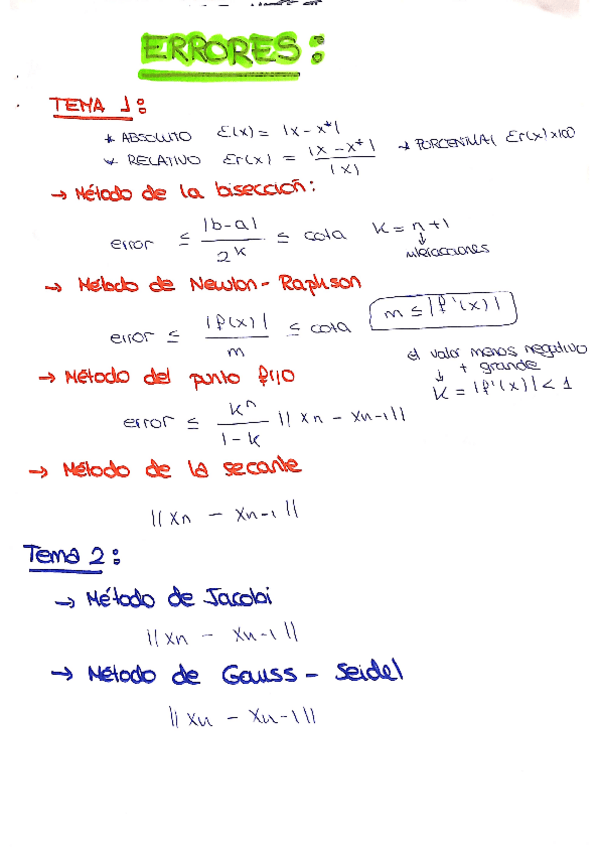 ERRORES:
TEMA 1:
* ABSOLUTO E(x) = |x - x*|
* RELATIVO Er(x) = |x - x*| / |x| → PORCENTUAL Er(x)x100
→ Método de la bisección:
error ≤ |b-a| / 2^k ≤ cota K = n+1
↓
iteraciones
→ Método de Newton-Raphson
error ≤ |f(x)| / m ≤ cota m ≤ |f'(x)|
el valor menos negativo
↓ + grande
→ Método del punto fijo
K = |f'(x)| < 1
error ≤ k^n / 1-k ||xn - xn-1||
→ Método de la secante
||xn - xn-1||
Tema 2:
→ Método de Jacobi
||xn - xn-1||
→ Método de Gauss-Seidel
||xn - xn-1||